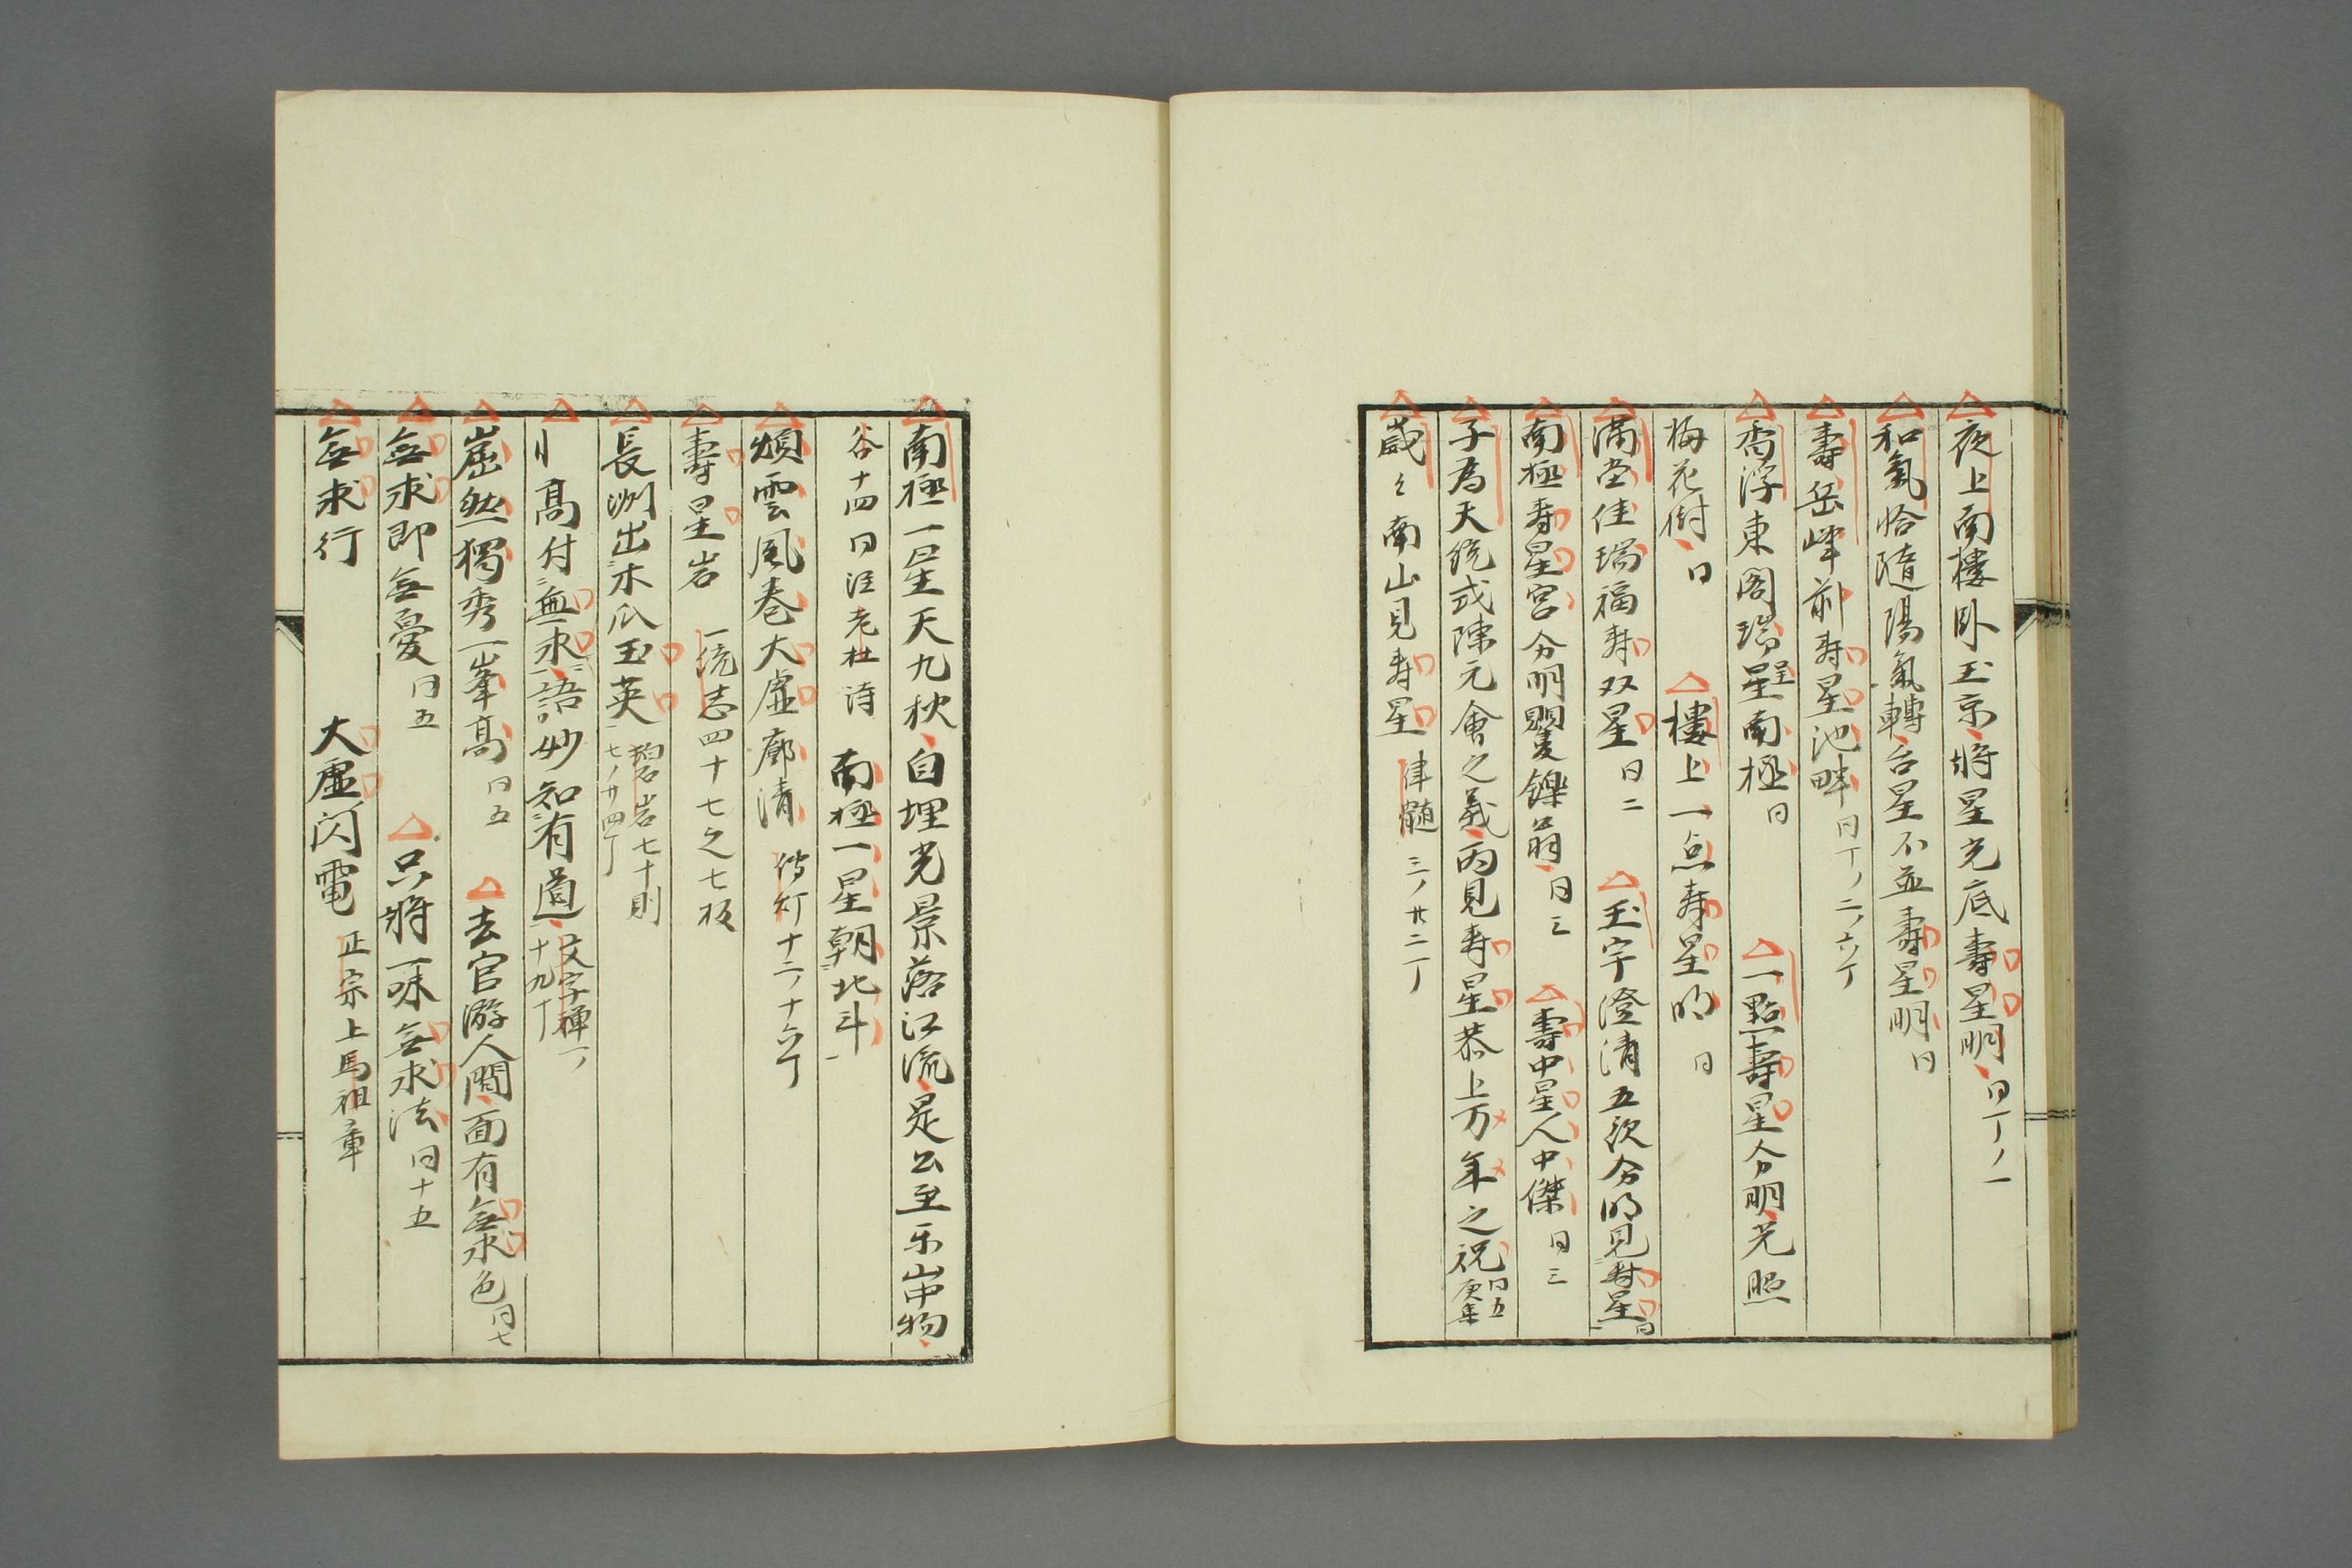 夜上南樓臥玉京將星光底壽星明 同丁ノ一
和氣恰隨陽氣轉台星不並壽星明 同
壽岳峰前寿星池畔 同丁ノ二ノ六丁
香浮東閣瑞星南極 同 一點壽星分明光照
梅花樹 同 樓上一点寿星明 同
満堂佳瑞福寿双星 同二 玉宇澄清五夜分明見寿星 同
南極寿星宮分明矍鑠翁 同三 壽中星人中傑 同三
子為天統式陳元會之義丙見寿星恭上万年之祝 同五
歲々南山見寿星 律髓 三ノ廿二丁
南極一星天九秋自埋光景落江流是公至乐山中物
谷十四 同注老杜詩 南極一星朝北斗
煩雲風卷大虛廓清 傳灯十二ノ十六丁
壽星岩 一統志四十七之七板
長洲出木瓜玉英 碧岩七十則
七ノ廿四丁
高付無求語妙知有道 文字禪一ノ
十九丁
崫然獨秀一峯高 同五 去官游人間面有無求色 同七
無求即無憂 同五 只將一味無求法 同十五
無求行 大虛閃電 正宗上馬祖章